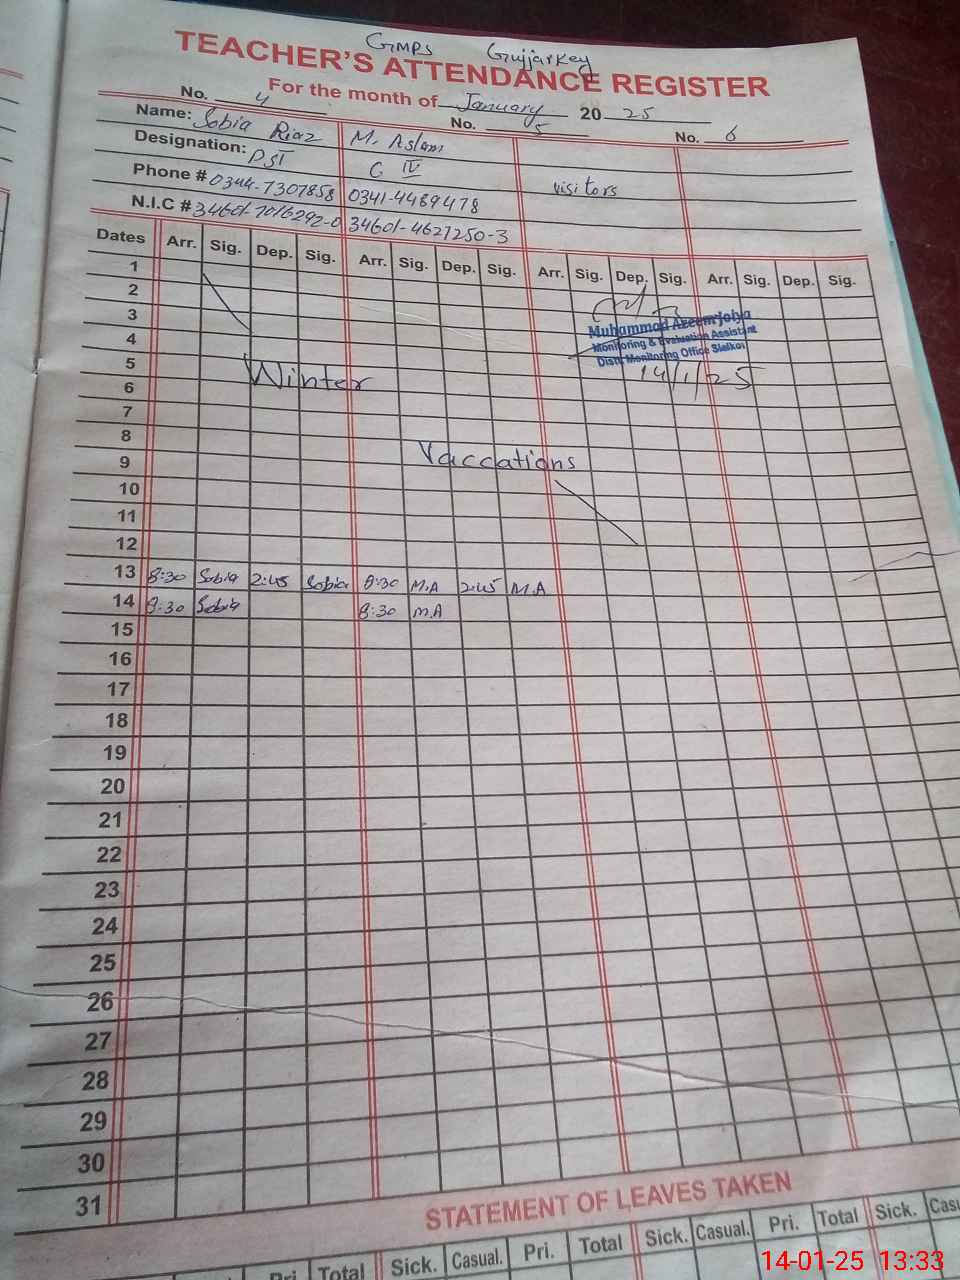 GMPS Gujjarkey
TEACHER'S ATTENDANCE REGISTER
For the month of January 2025
No. 4 No. 5 No. 6
Name: Sobia Riaz M. Aslam
Designation: PST C IV visitors
Phone # 0344-7307858 0341-4489478
N.I.C # 34601-7016292-0 34601-4627250-3
Dates Arr. Sig. Dep. Sig. Arr. Sig. Dep. Sig. Arr. Sig. Dep. Sig. Arr. Sig. Dep. Sig.
1
2
3
Muhammad Azeem Jobia
Monitoring & Evaluation Assistant
Distt. Monitoring Office Sialkot
14/1/25
4
5
Winter
6
7
8
9 Vaccations
10
11
12
13 8:30 Sobia 2:45 Sobia 8:30 M.A 2:45 M.A
14 8:30 Sobia 8:30 M.A
15
16
17
18
19
20
21
22
23
24
25
26
27
28
29
30
31
STATEMENT OF LEAVES TAKEN
Pri. Total Sick. Casual. Pri. Total Sick. Casual. Pri. Total Sick. Casu
14-01-25 13:33